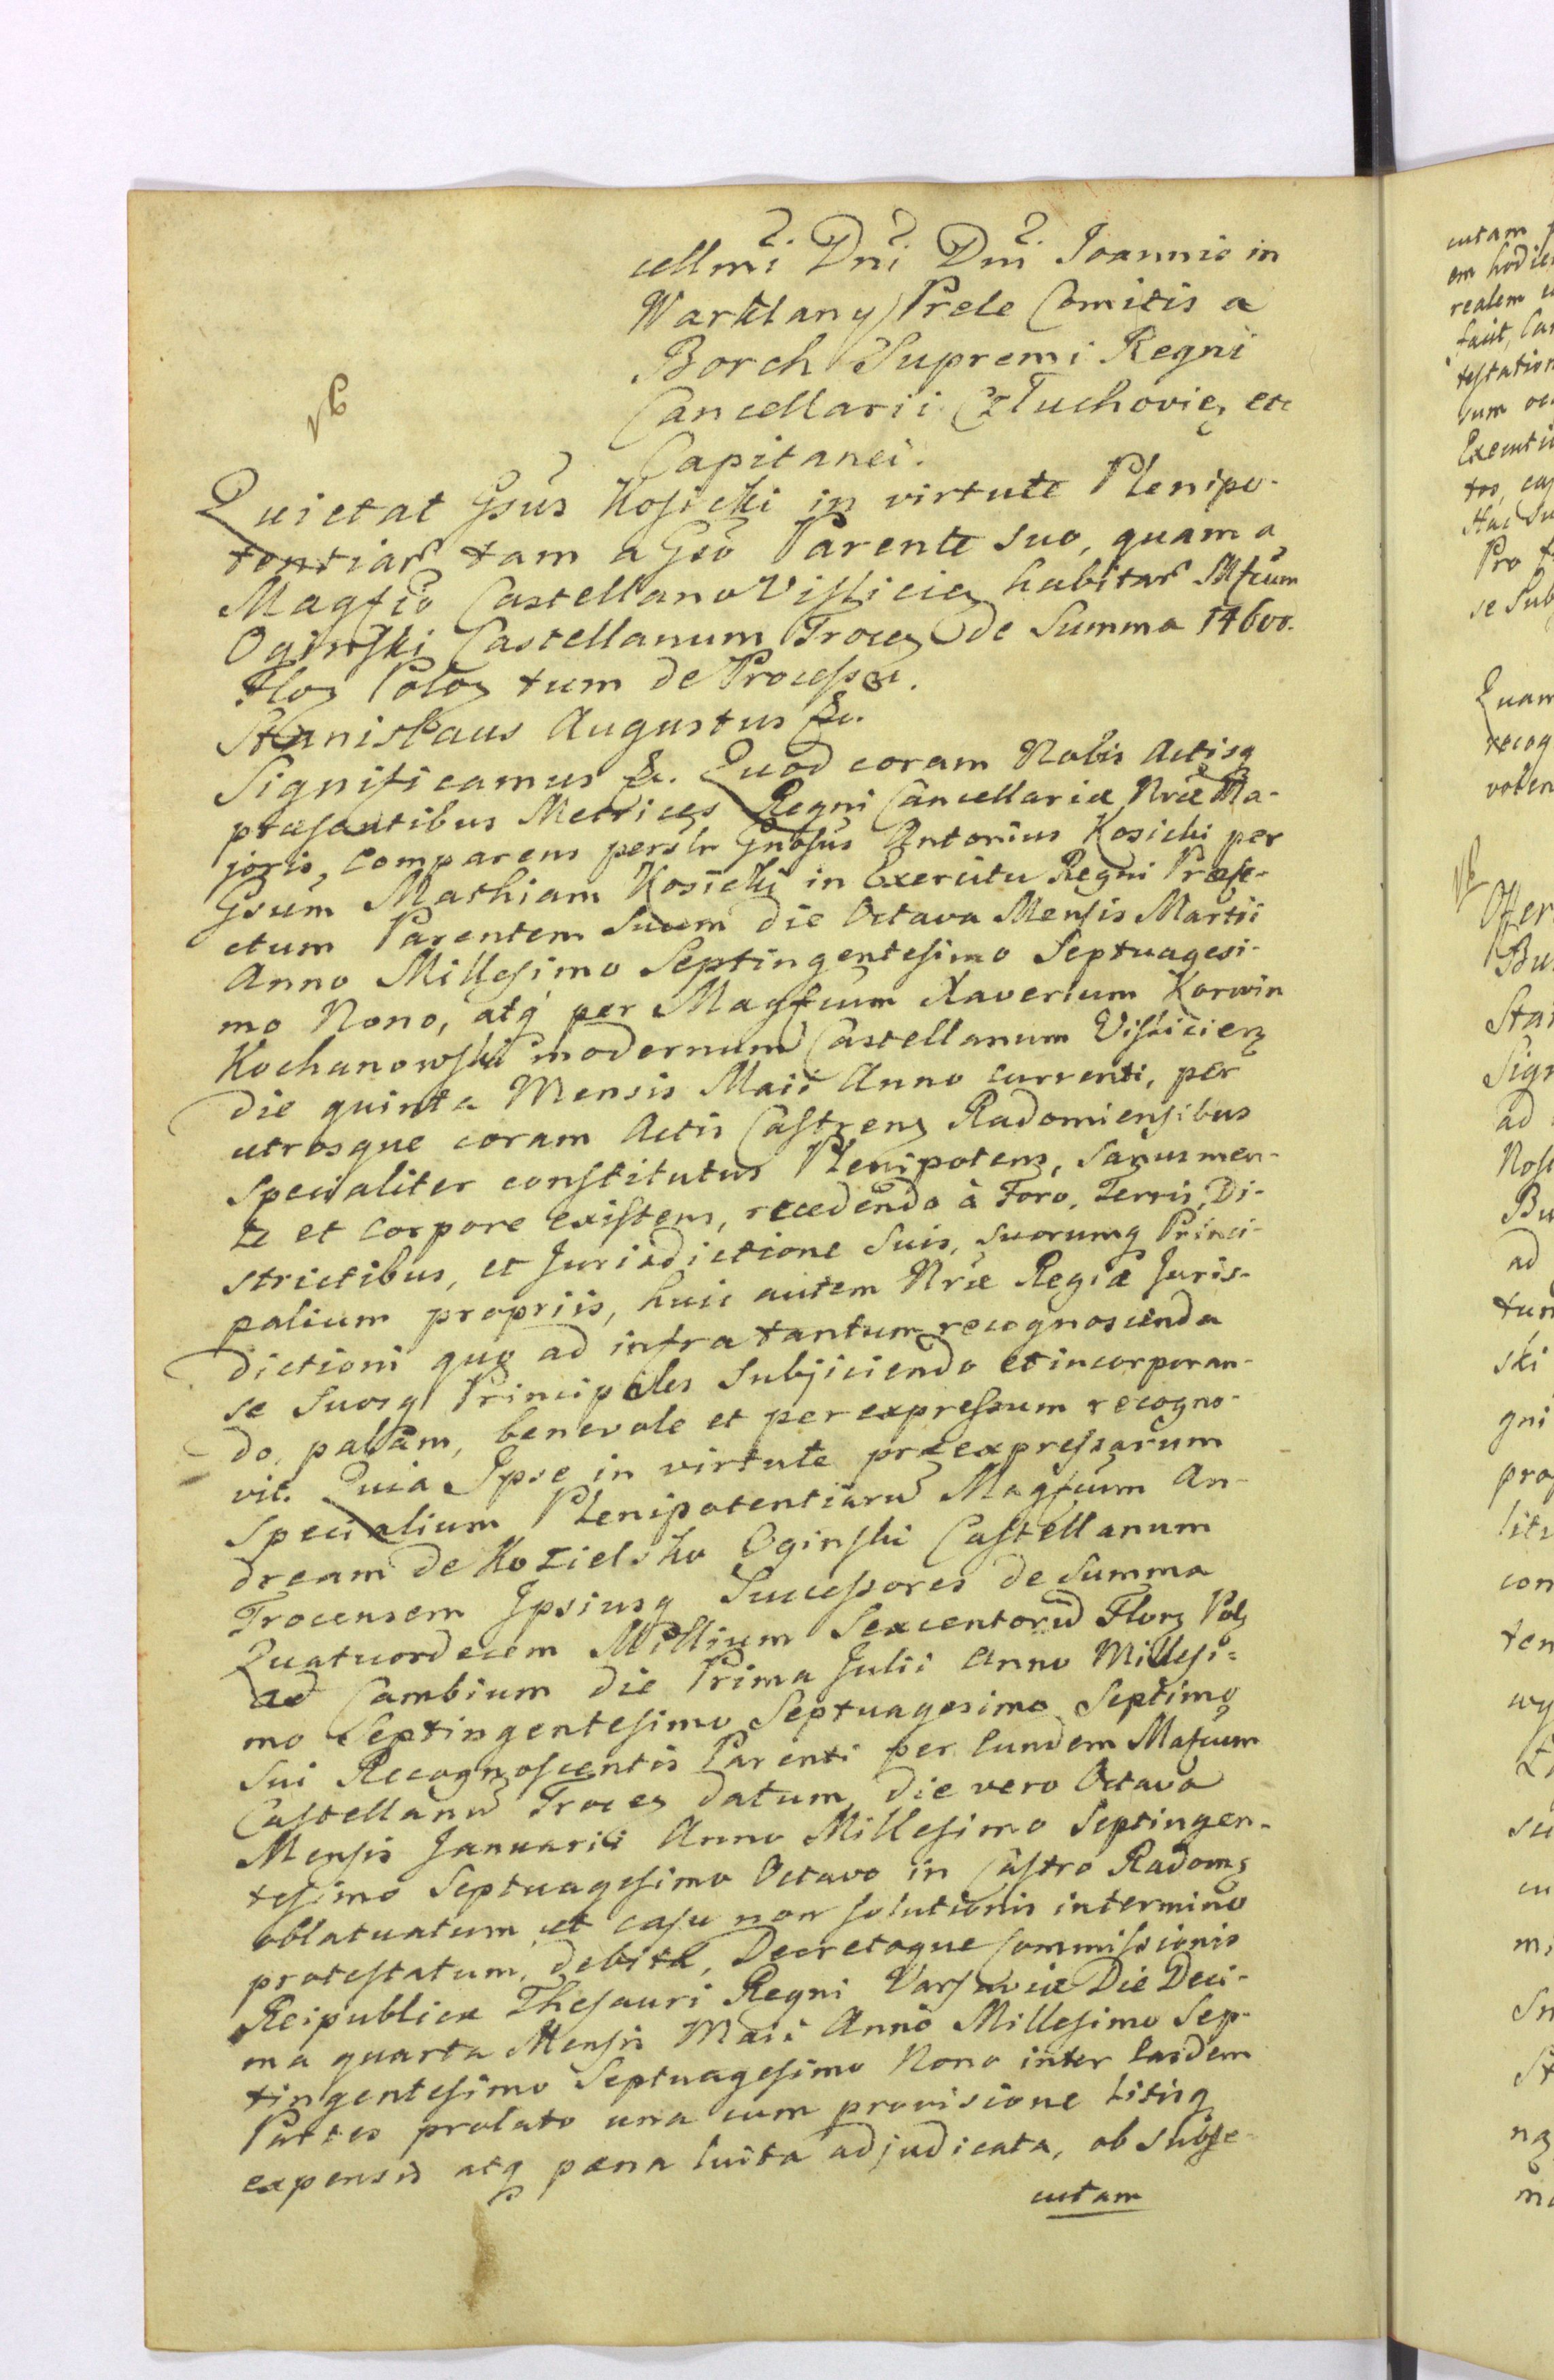 cellmi Dni Dni Joannis in
Warklany Prele Comitis a
Borch Supremi Regni
Cancellarii Człuchovien etc
Capitanei.
Quietat Gsus Kosicki in virtute Plenipo-
tentiar tam a Gso Parente suo, quam a
Magfico Castellano Vislicien habitar Mficum
Oginski Castellanum Trocen de Summa 14600.
Floz Poloz tum de Processu.
Stanislaus Augustus &c.
Significamus &c. Quod coram Nobis Actisq
præsentibus Metrices Regni Cancellariæ Nræ Ma-
joris, Comparens persлr Gnosus Antonius Kosicki per
Gsum Mathiam Kosicki in Exercitu Regni Præfe-
ctum Parentem Suum die Octava Mensis Martii
Anno Millesimo Septingentesimo Septuagesi-
mo Nono, atq per Magficum Xaverium Korwin
Kochanowski modernum Castellanum Vislicien
die quinta Mensis Maii Anno currenti, per
utrosque coram Actis Castren Radomiensibus
specialiter constitutus Plenipotens, sanus men-
te et corpore existens, recedendo à Foro, Terris, Di-
strictibus, et Jurisdictione Suis, suorumq Princi-
palium propriis, huic autem Nræ Regiæ Juris-
dictioni quo ad infra tantum recognoscenda
se suosq Principales subjiciendo et incorporan-
do, palam, benevole et per expressum recogno-
vit. Quia Ipse in virtute præexpressarum
specialium Plenipotentiarum Magficum An-
dream de Kozielsko Oginski Castellanum
Trocensem Ipsiusq Successores de Summa
Quatuordecem Millium Sexcentorum Florz Polz
ad Cambium die Prima Julii Anno Millesi-
mo Septingentesimo Septuagesimo Septimo
Sui Recognoscentis Parenti per Eundem Mficum
Castellanum Trocen datum, die vero Octava
Mensis Januarii Anno Millesimo Septingen-
tesimo Septuagesimo Octavo in Castro Radom
oblatuatum et casu non solutionis in termino
protestatum, debita, Decretoque Commissionis
Reipublicæ Thesauri Regni Varsaviæ Die Deci-
ma quarta Mensis Maii Anno Millesimo Sep-
tingentesimo Septuagesimo Nono inter Easdem
Partes prolato una cum provisione Litisq
expensis atq pæna luita adjudicata, ob subse-
cutam